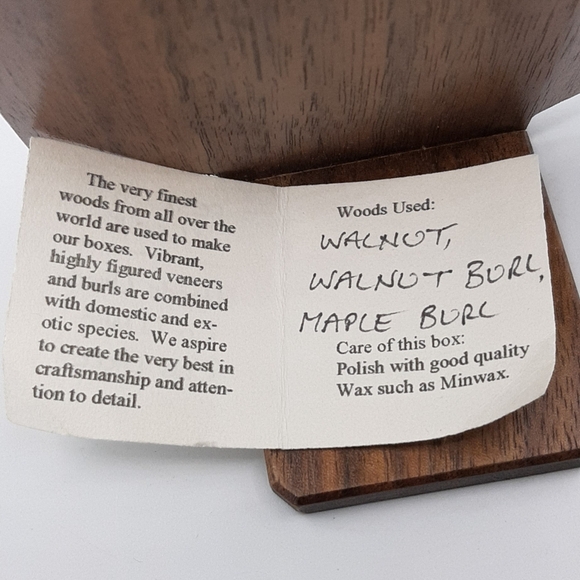 The very finest
woods from all over the
world are used to make
our boxes. Vibrant,
highly figured veneers
and burls are combined
with domestic and ex-
otic species. We aspire
to create the very best in
craftsmanship and atten-
tion to detail.
Woods Used:
WALNUT,
WALNUT BURL,
MAPLE BURL
Care of this box:
Polish with good quality
Wax such as Minwax.